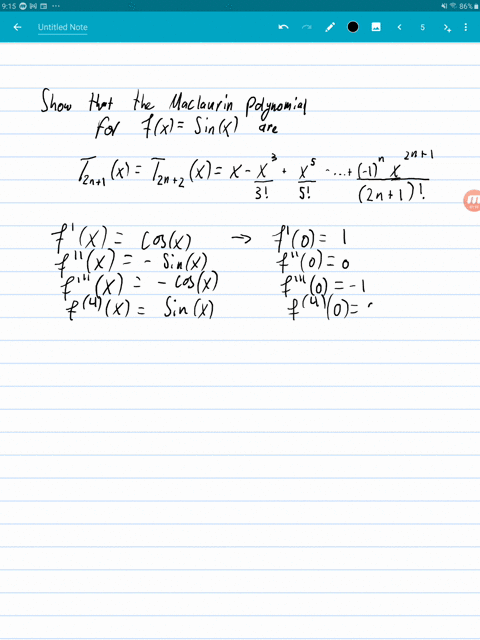 9:15
86%
Untitled Note
5
Show that the Maclaurin Polynomial
for f(x) = Sin(x) are
T_{2n+1}(x) = T_{2n+2}(x) = x - x^3/3! + x^5/5! - ... + (-1)^n x^{2n+1}/(2n+1)!
f'(x) = Cos(x) → f'(0) = 1
f''(x) = - Sin(x) f''(0) = 0
f'''(x) = - Cos(x) f'''(0) = -1
f^(4)(x) = Sin(x) f^(4)(0) =